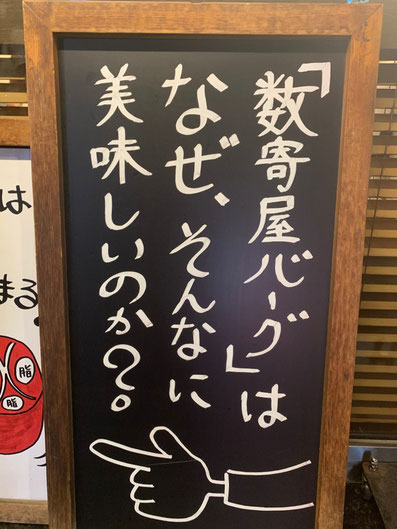 「数寄屋バーグ」は
なぜ、そんなに
美味しいのか?。
は
まる
脂
脂